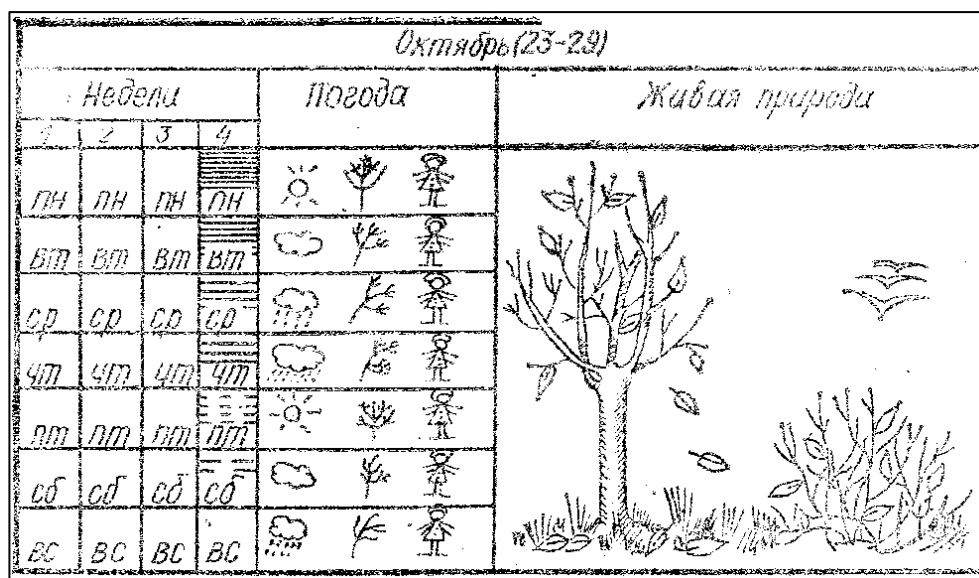 Октябрь (23-29)
Недели Погода Живая природа
1 2 3 4
пн пн пн пн
вт вт вт вт
ср ср ср ср
чт чт чт чт
пт пт пт пт
сб сб сб сб
вс вс вс вс